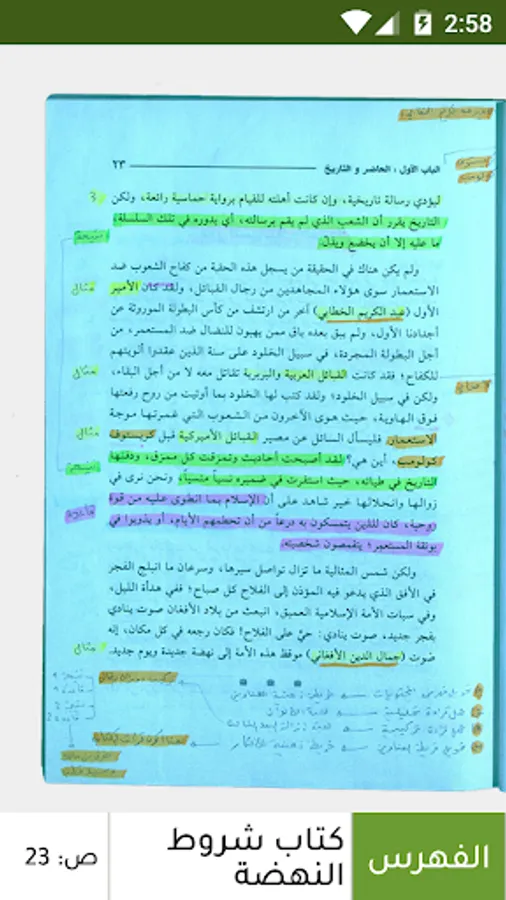 2:58
الباب الأول : الحاضر و التاريخ ٢٣
ليؤدي رسالة تاريخية، وإن كانت أهلته للقيام برواية حماسية رائعة، ولكن
التاريخ يقرر أن الشعب الذي لم يقم برسالته، أي بدوره في تلك السلسلة،
ما عليه إلا أن يخضع ويذل.
ولم يكن هناك في الحقيقة من يسجل هذه الحقبة من كفاح الشعوب ضد
الاستعمار سوى هؤلاء المجاهدين من رجال القبائل، ولقد كان الأمير
الأول (عبد الكريم الخطابي) آخر من ارتشف من كأس البطولة الموروثة عن
أجدادنا الأول، ولم يبق بعده باق ممن يهبون للنضال ضد المستعمر، من
أجل البطولة المجردة، في سبيل الخلود على سنة الذين عقدوا ألويتهم
للكفاح؛ فقد كانت القبائل العربية والبربرية تقاتل معه لا من أجل البقاء،
ولكن في سبيل الخلود؛ ولقد كتب لها الخلود بما أوتيت من روح رفعتها
فوق الهاوية، حيث هوى الآخرون من الشعوب التي غمرتها موجة
الاستعمار. فليسأل السائل عن مصير القبائل الأميركية قبل كريستوف
كولومب، أين هي؟ لقد أصبحت أحاديث وتمزقت كل ممزق، ودفنها
التاريخ في طياته، حيث استقرت في ضميره نسياً منسياً، ونحن نرى في
زوالها وانحلالها خير شاهد على أن الإسلام بما انطوى عليه من قوة
روحية، كان للذين يتمسكون به درعاً من أن تحطمهم الأيام، أو يذوبوا في
بوتقة المستعمر؛ يتقمصون شخصيته.
ولكن شمس المثالية ما تزال تواصل سيرها، وسرعان ما انبلج الفجر
في الأفق الذي يدعو فيه المؤذن إلى الفلاح كل صباح؛ ففي هدأة الليل،
وفي سبات الأمة الإسلامية العميق، انبعث من بلاد الأفغان صوت ينادي
بفجر جديد، صوت ينادي: حيّ على الفلاح! فكان رجعه في كل مكان، إنه
صوت (جمال الدين الأفغاني) موقظ هذه الأمة إلى نهضة جديدة ويوم جديد.
مثال
مثال
مثال
مثال
الفهرس
كتاب شروط
النهضة
ص: 23